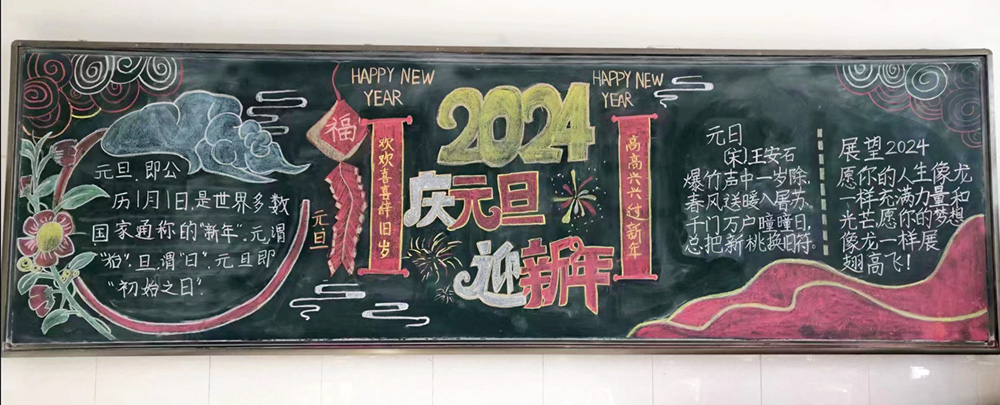 元旦,即公
历1月1日,是世界多数
国家通称的"新年".元谓
"始".旦谓"日".元旦即
"初始之日".
福
元旦
HAPPY NEW
YEAR
欢欢喜喜辞旧岁
2024
庆元旦
迎新年
HAPPY NEW
YEAR
高高兴兴过新年
元日
(宋)王安石
爆竹声中一岁除,
春风送暖入屠苏,
千门万户瞳瞳日,
总把新桃换旧符.
展望2024
愿你的人生像龙
一样充满力量和
光芒愿你的梦想
像龙一样展
翅高飞!